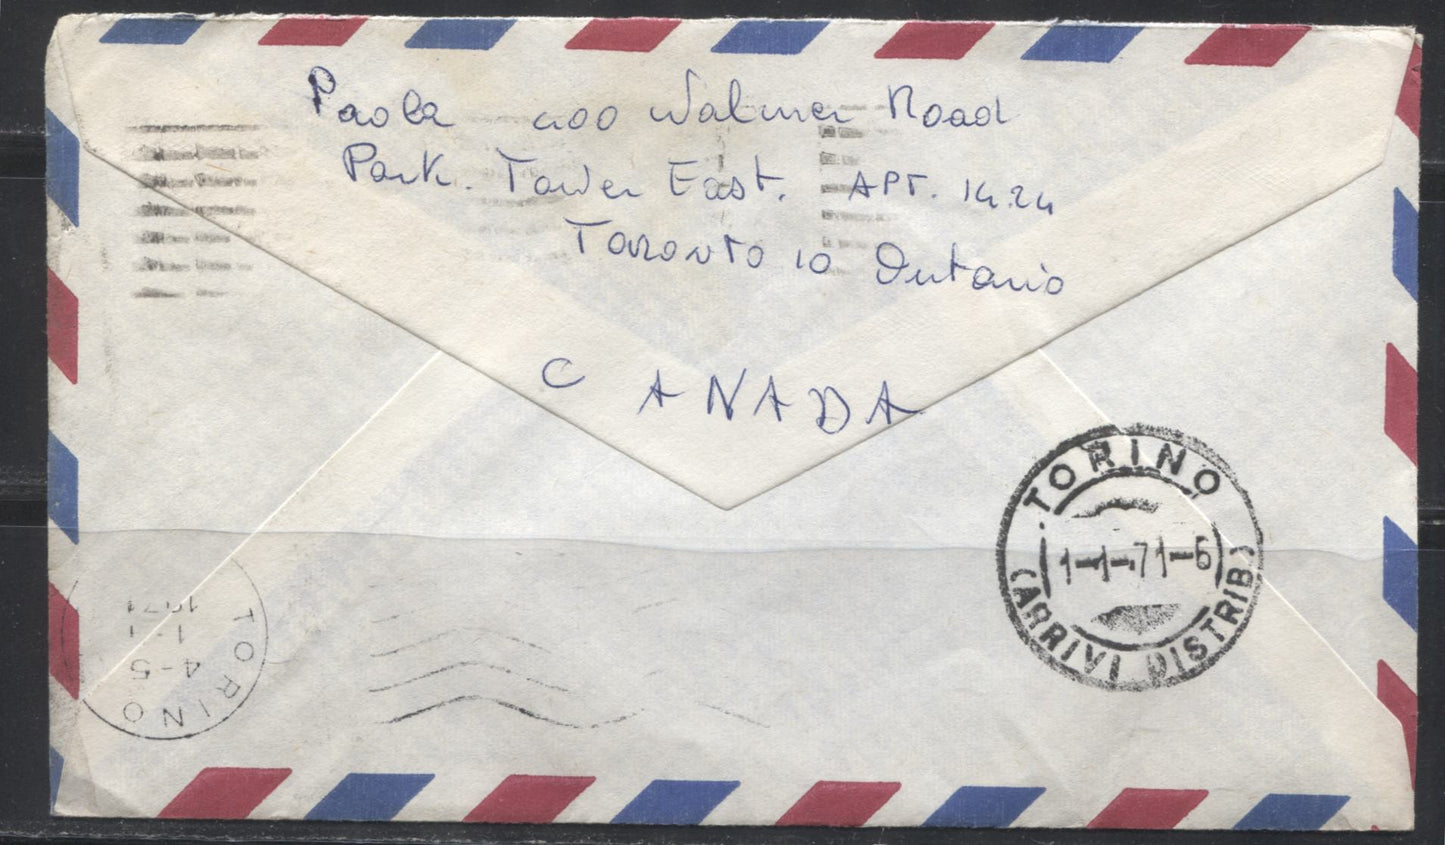 Paola 400 Walmer Road
Park. Tower East. APT. 1424
Toronto 10 Ontario
CANADA
TORINO
1-1-71-6
(ARRIVI DISTRIB)
TORINO
4-5
1-1
1971